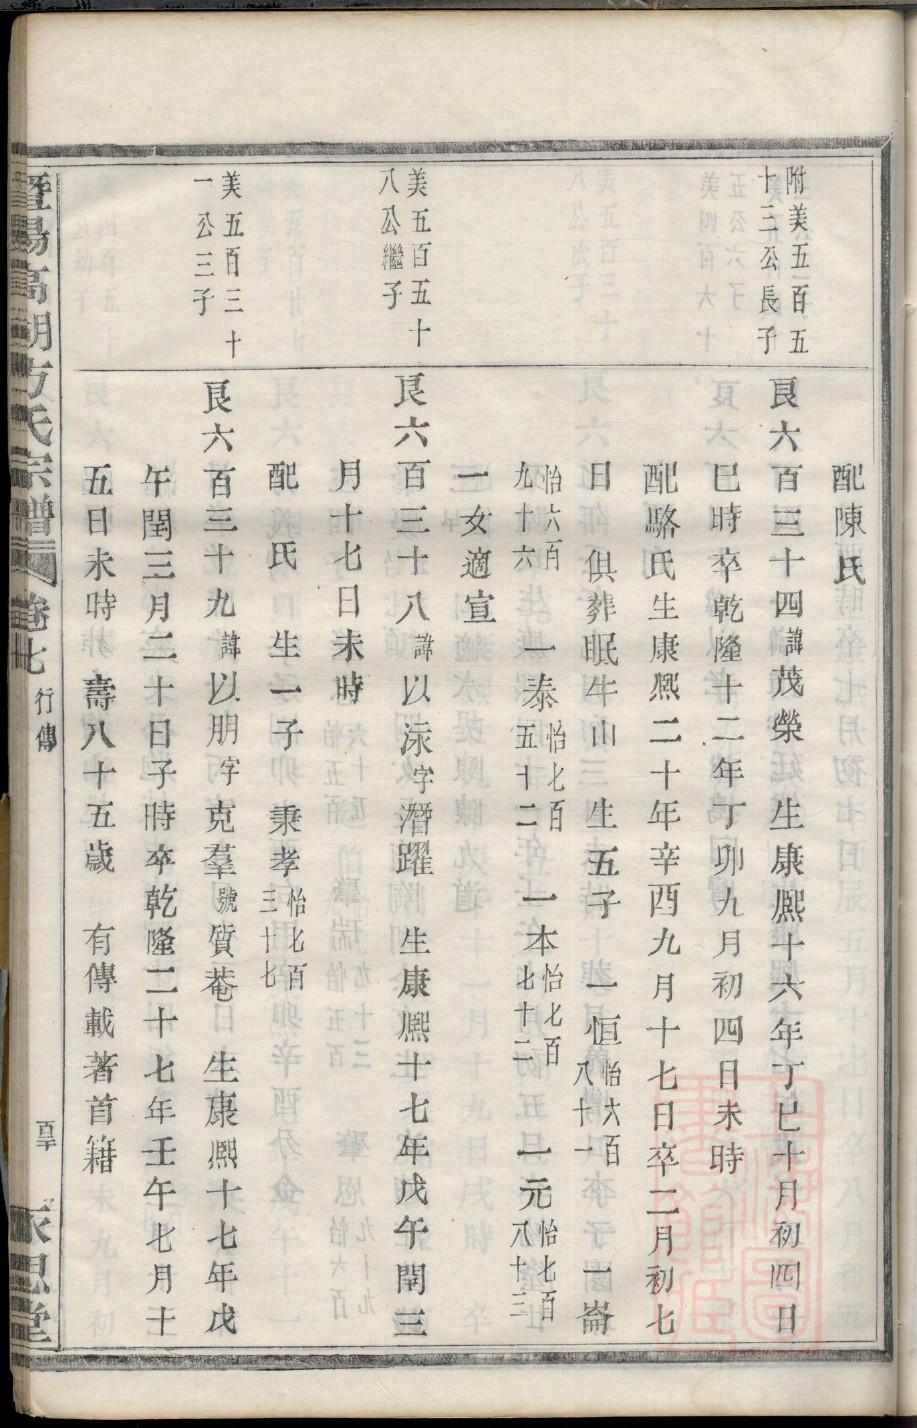 配陳氏
附美五百五
十三公長子
良六百三十四諱茂榮 生康熙十六年丁巳十月初四日
巳時卒乾隆十二年丁卯九月初四日未時
配駱氏生康熙二十年辛酉九月十七日卒二月初七
日 俱葬眠牛山 生五子 一恒怡六百八十一 一崙
怡六百九十六 一泰怡七百五十二 一本怡七百七十二 一元怡七百八十三
一女適宣
美五百五十
八公繼子
良六百三十八諱以洓字潛躍 生康熙十七年戊午閏三
月十七日未時
配氏 生一子 秉孝怡七百三十七
美五百三十
一公三子
良六百三十九諱以朋字克羣號質菴 生康熙十七年戊
午閏三月二十日子時卒乾隆二十七年壬午七月十
五日未時 壽八十五歲 有傳載著首籍
暨陽高湖方氏宗譜 卷七 行傳 永思堂